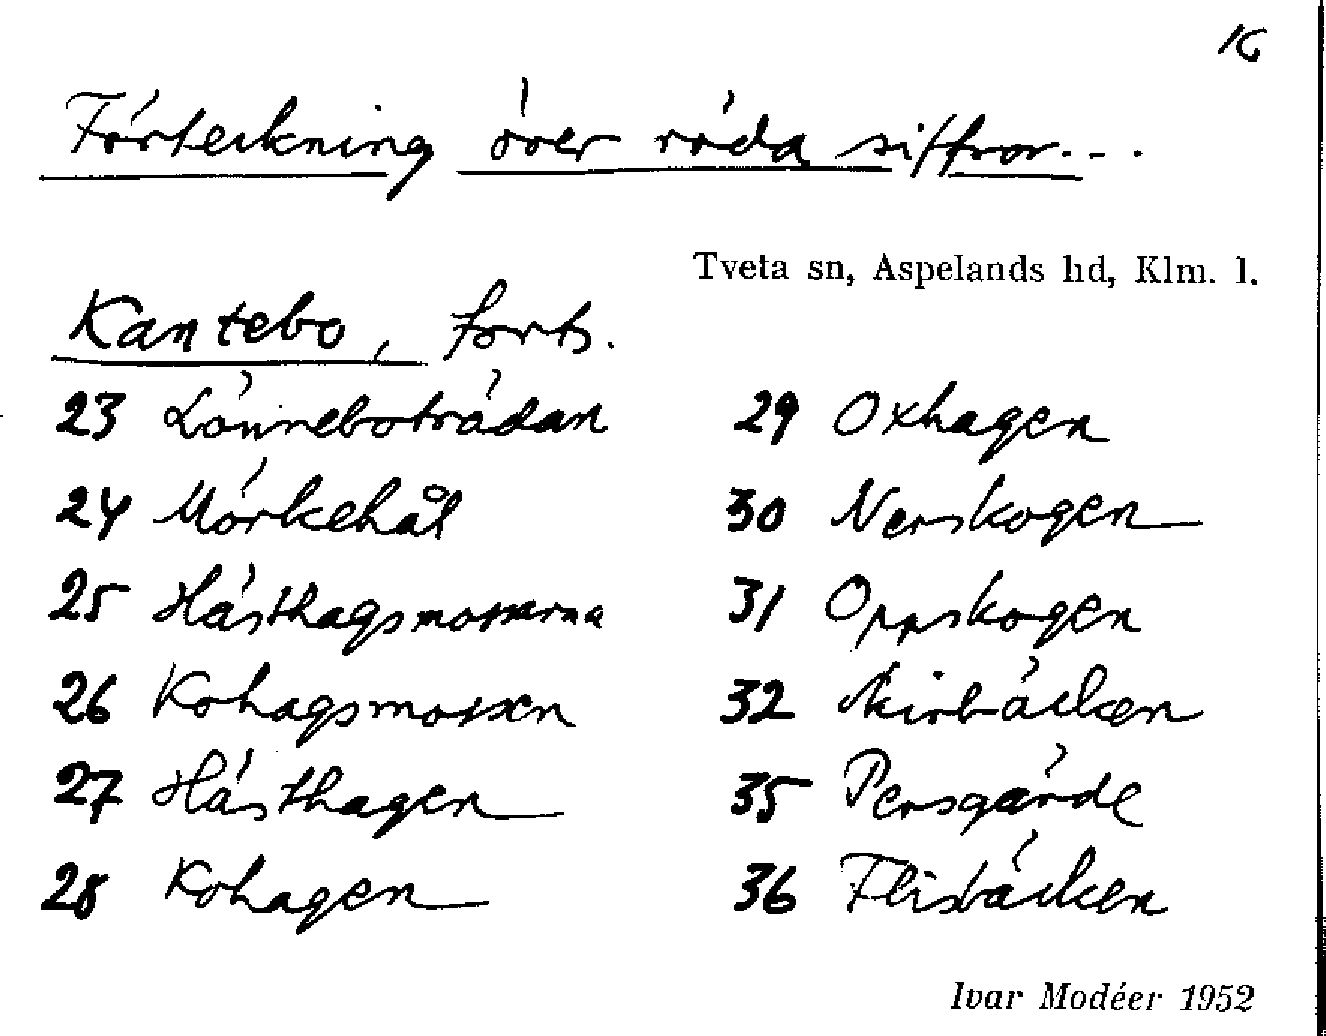 16
Förteckning över röda siffror...
Tveta sn, Aspelands hd, Klm. l.
Kantebo, forts.
23 Lönneboträdan
24 Mörkehål
25 Hästhagsmossarna
26 Kohagsmossen
27 Hästhagen
28 Kohagen
29 Oxhagen
30 Nerskogen
31 Oppskogen
32
35 Persgärde
36 Flisbäcken
Ivar Modéer 1952